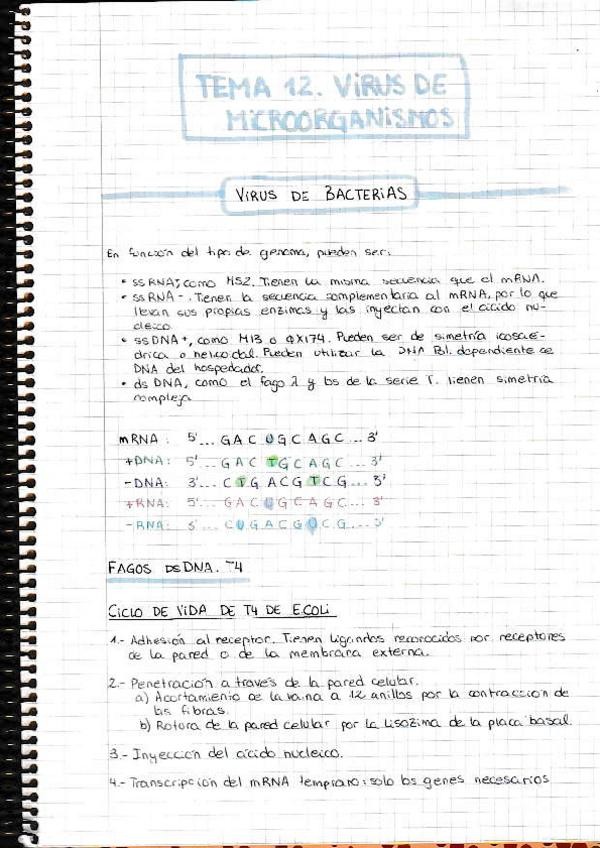 TEMA 12. VIRUS DE
MICROORGANISMOS
VIRUS DE BACTERIAS
En función del tipo de genoma, pueden ser:
• ssRNA, como MS2. Tienen la misma secuencia que el mRNA.
• ssRNA-. Tienen la secuencia complementaria al mRNA, por lo que
llevan sus propias enzimas y las inyectan con el ácido nu-
cleico
• ssDNA+, como M13 o φX174. Pueden ser de simetría icosaé-
drica o helicoidal. Pueden utilizar la DNA Pol. dependiente de
DNA del hospedador.
• ds DNA, como el fago λ y los de la serie T. Tienen simetría
compleja
mRNA: 5'... GACUGCAGC... 3'
+DNA: 5'... GACTGCAGC... 3'
-DNA: 3'... CTGACGTCG... 5'
+RNA: 5'... GACUGCAGC... 3'
-RNA: 3'... CUGACGUCG... 5'
FAGOS dsDNA. T4
CICLO DE VIDA DE T4 DE E.COLI
1.- Adhesión al receptor. Tienen ligandos reconocidos por receptores
de la pared o de la membrana externa.
2.- Penetración a través de la pared celular.
a) Acortamiento de la vaina a 12 anillos por la contracción de
las fibras.
b) Rotura de la pared celular por la lisozima de la placa basal.
3.- Inyección del ácido nucleico.
4.- Transcripción del mRNA temprano: solo los genes necesarios